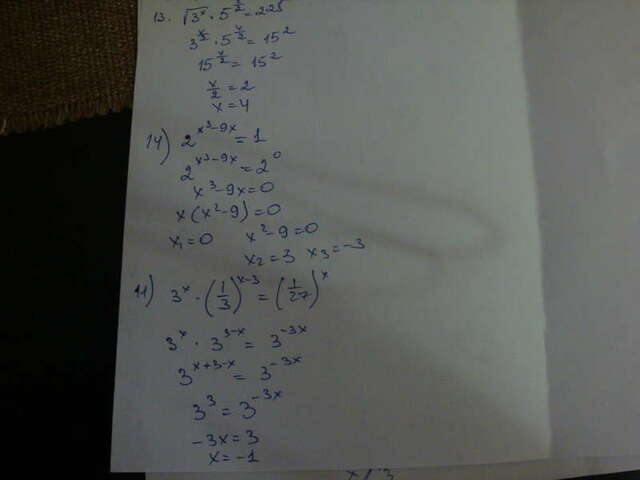 13. √3^x · 5^(x/2) = 225
3^(x/2) · 5^(x/2) = 15^2
15^(x/2) = 15^2
x/2 = 2
x = 4
14) 2^(x^3-9x) = 1
2^(x^3-9x) = 2^0
x^3-9x=0
x(x^2-9)=0
x1=0 x^2-9=0
x2=3 x3=-3
11) 3^x · (1/3)^(x-3) = (1/27)^x
3^x · 3^(3-x) = 3^(-3x)
3^(x+3-x) = 3^(-3x)
3^3 = 3^(-3x)
-3x=3
x=-1